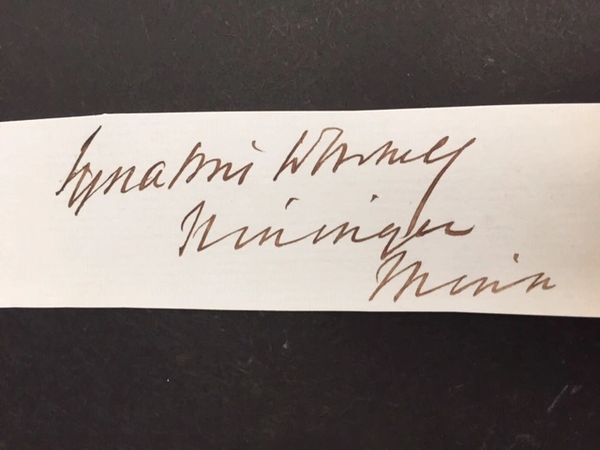 Ignatius Donnelly
Nininger
Minn